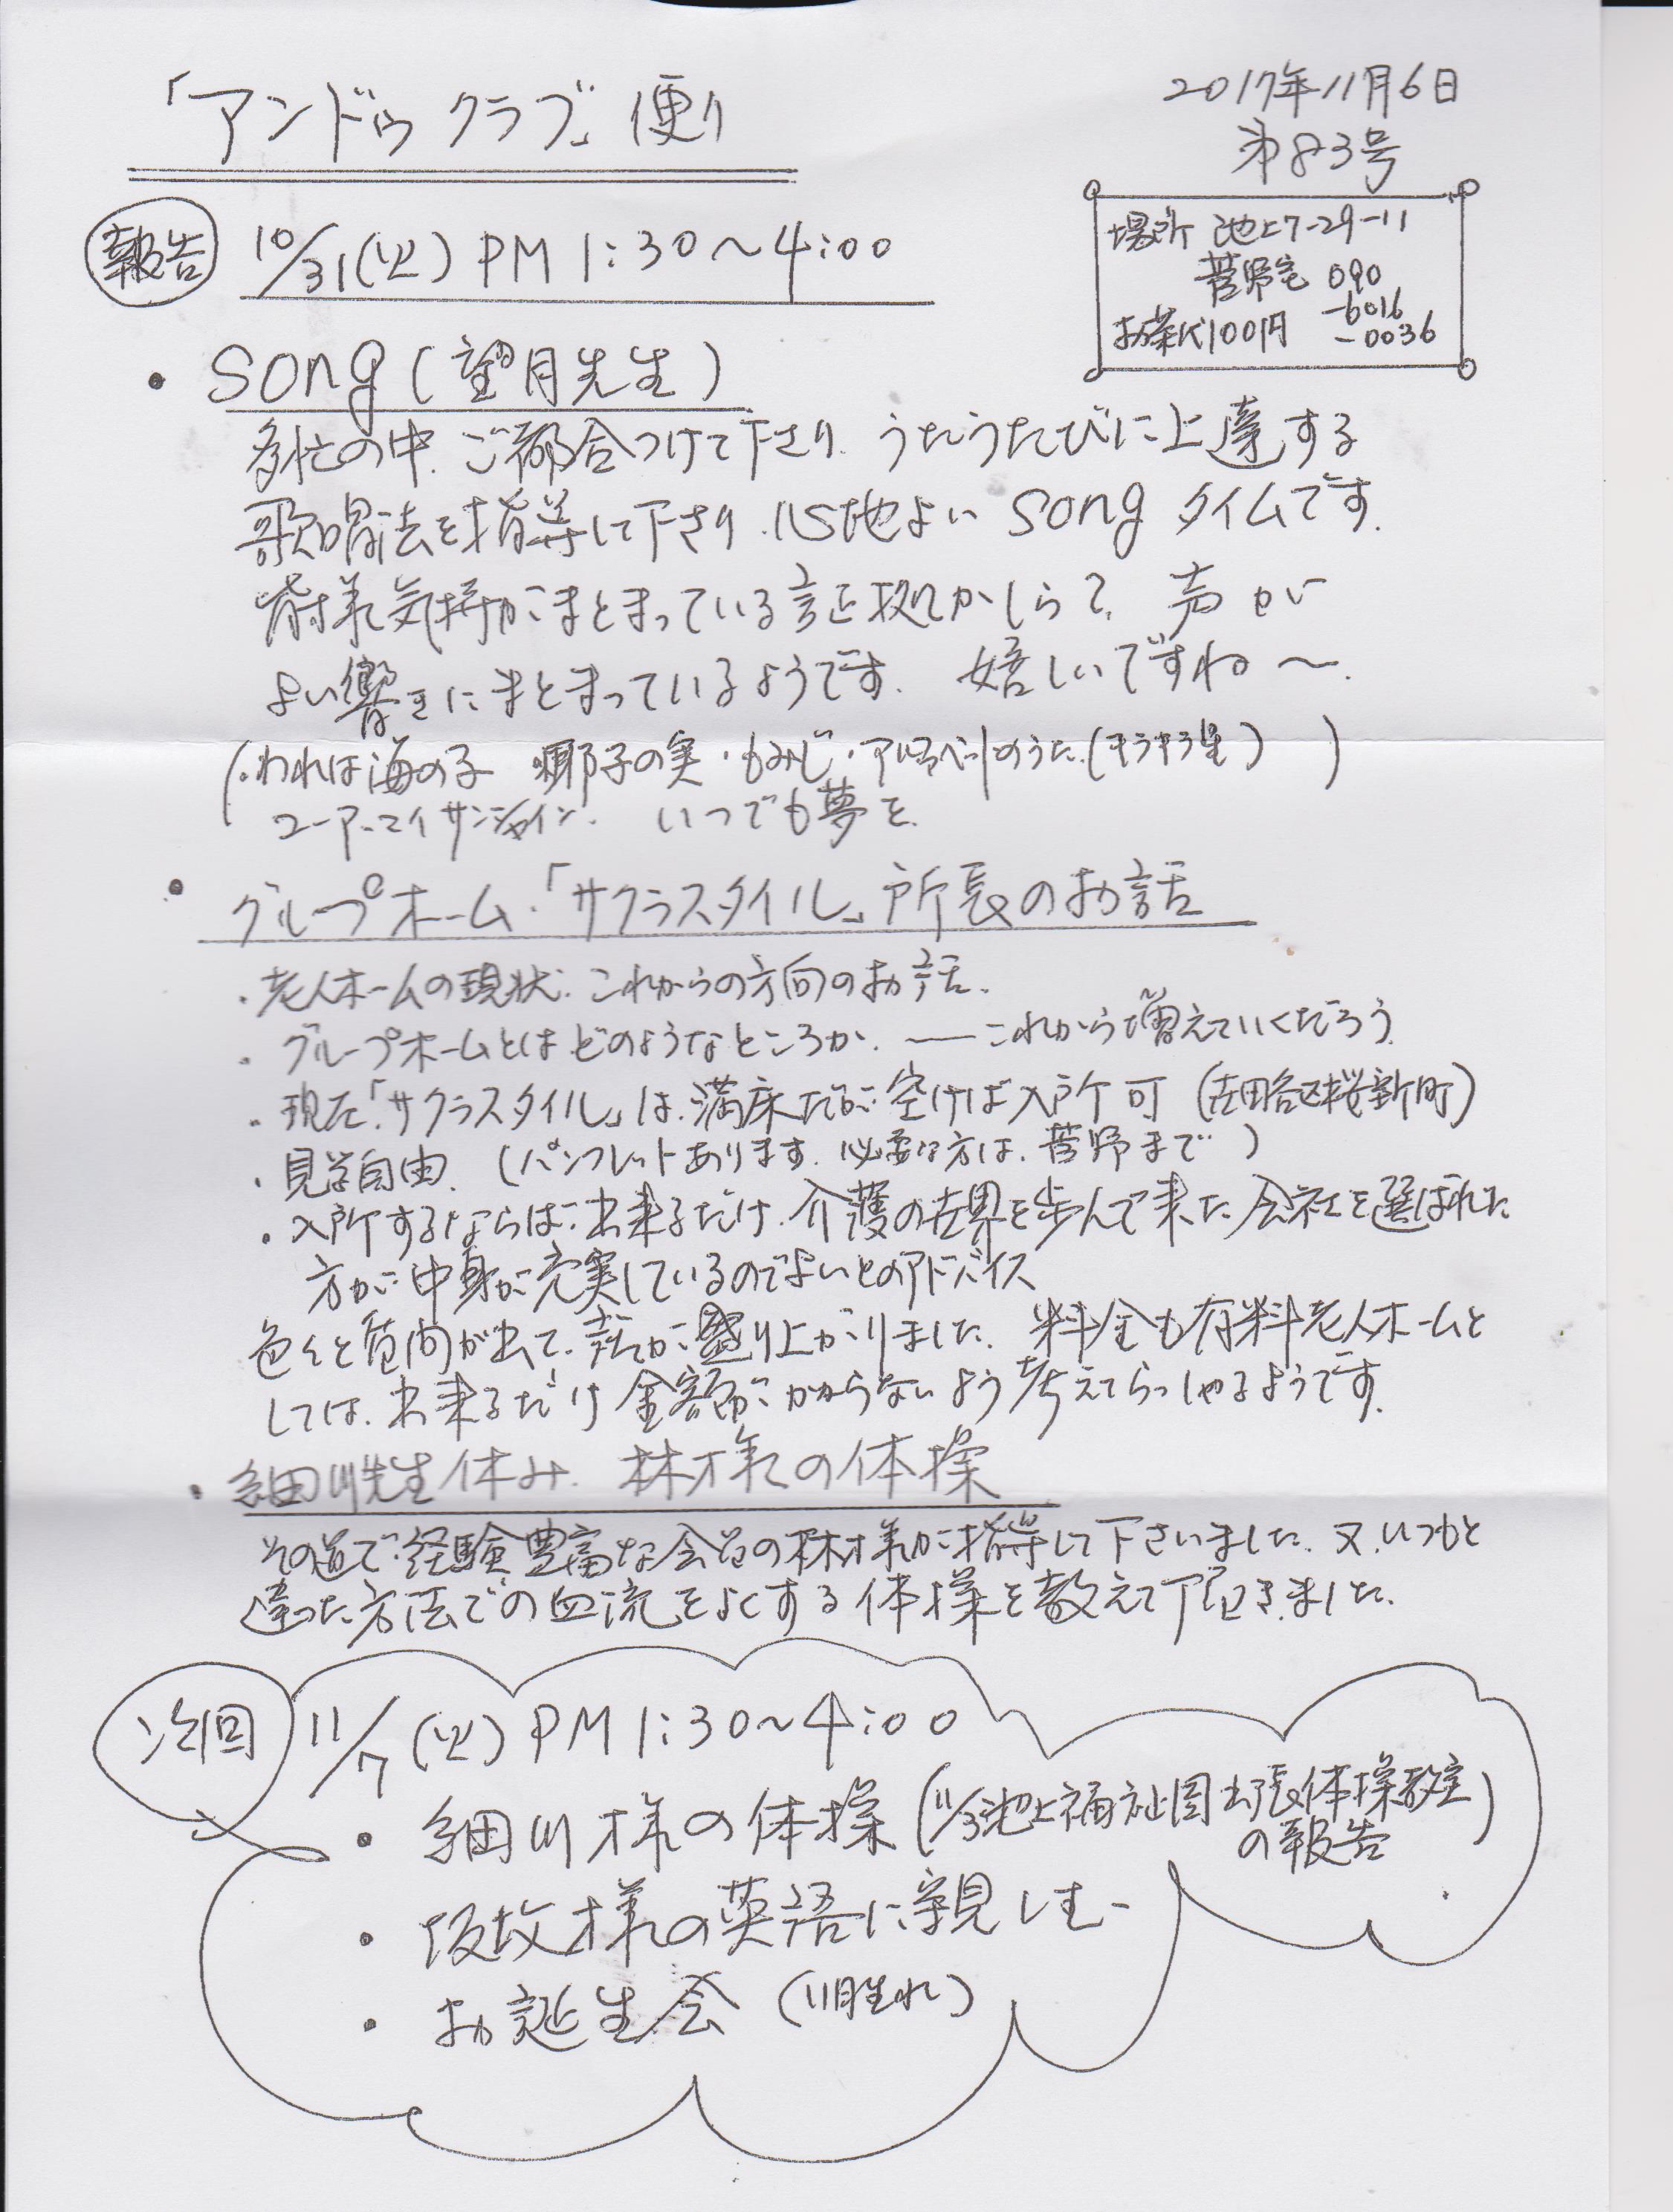 「アンドゥクラブ」便り
2017年11月6日
第83号
場所 池上7-29-11
菅野宅 090
-6016
お茶代100円 -0036
報告 10/31(火) PM 1:30〜4:00
・song(望月先生)
多忙の中、ご都合つけて下さり、うたうたびに上達する
歌唱法を指導して下さり、心地よい song タイムです。
皆様気持がまとまっている証拠かしら?、声が
よい響きにまとまっているようです。嬉しいですね〜。
(・われは海の子 椰子の実・もみじ・アルファベットのうた(キラキラ星) )
ユーアーマイサンシャイン. いつでも夢を
・グループホーム・「サクラスタイル」所長のお話
・老人ホームの現状. これからの方向のお話.
・グループホームとはどのようなところか. ―これから増えていくだろう.
・現在「サクラスタイル」は、満床だが空けば入所可(世田谷区桜新町)
・見学自由. (パンフレットあります. 必要な方は、菅野まで)
・入所するならば、出来るだけ、介護の世界を歩んで来た会社を選ばれた
方が中身が充実しているのでよいとのアドバイス
色々と質問が出て、話が盛り上がりました。料金も有料老人ホームと
しては、出来るだけ金額がかからないよう考えてらっしゃるようです。
・細川先生休み. 林様の体操
その道で経験豊富な会員の林様が指導して下さいました。又、いつもと
違った方法での血流をよくする体操を教えて頂きました。
次回 11/7(火) PM 1:30〜4:00
・細川様の体操(11/3池上福祉園出張体操教室
の報告)
・坂牧様の英語に親しむ
・お誕生会(11月生れ)